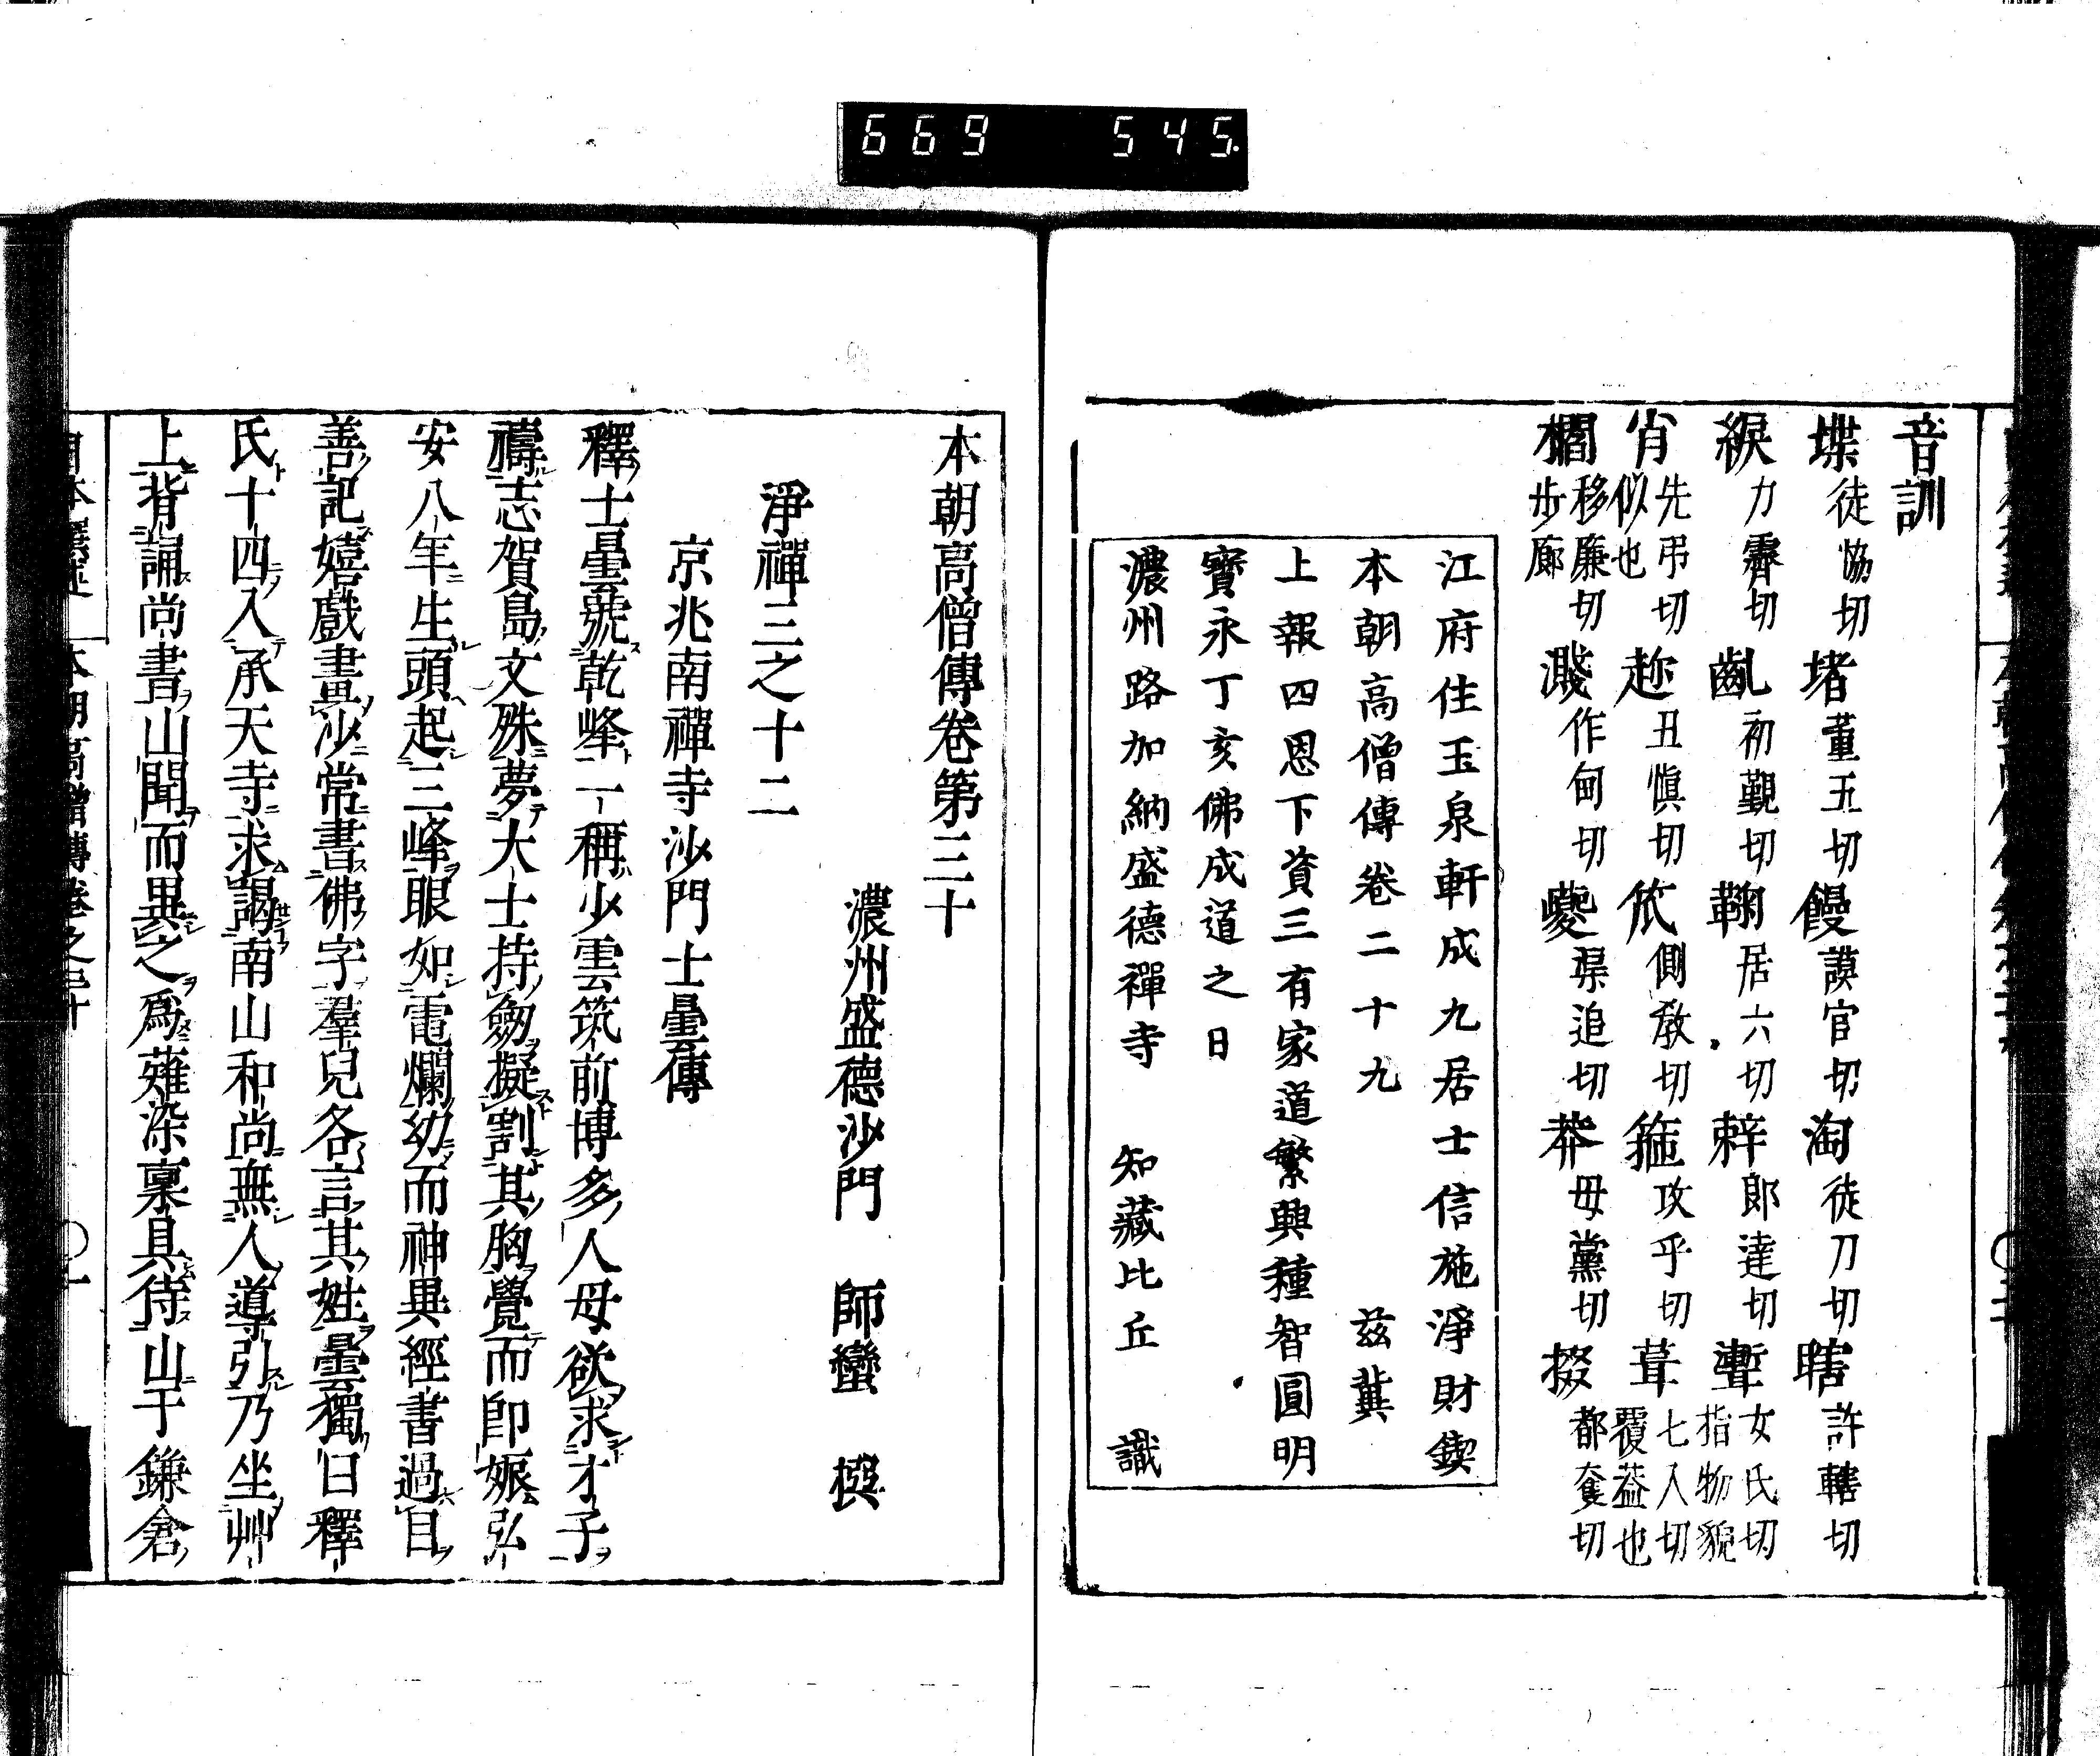 669 545.
音訓
堞徒協切 堵董五切 饅謨官切 淘徒刀切 瞎許轄切
綟力霽切 齓初覲切 鞠居六切 辢郎達切 聻女氏切指物貌
肖先弔切似也 趂丑愼切 笊側敎切 箍攻乎切 葺七入切覆葢也
櫩移廉切步廊 濺作甸切 夔渠追切 莽毋黨切 掇都奪切
江府住玉泉軒成九居士信施淨財鍥
本朝高僧傳卷二十九 兹冀
上報四恩下資三有家道繁興種智圓明
寶永丁亥佛成道之日
濃州路加納盛德禪寺 知藏比丘 識
本朝高僧傳卷第三十
濃州盛德沙門 師蠻 撰
淨禪三之十二
京兆南禪寺沙門士曇傳
釋士曇號乾峰一稱少雲筑前博多人母欲求才子
禱志賀島文殊夢大士持劔擬割其胸覺而卽娠弘
安八年生頭起三峰眼如電爛幼而神異經書過目
善記嬉戲畫沙常書佛字羣兒各言其姓曇獨曰釋
氏十四入承天寺求謁南山和尚無人導引乃坐艸
上背誦尚書山聞而異之爲薙染稟具侍山于鎌倉
本朝高僧傳卷之三十